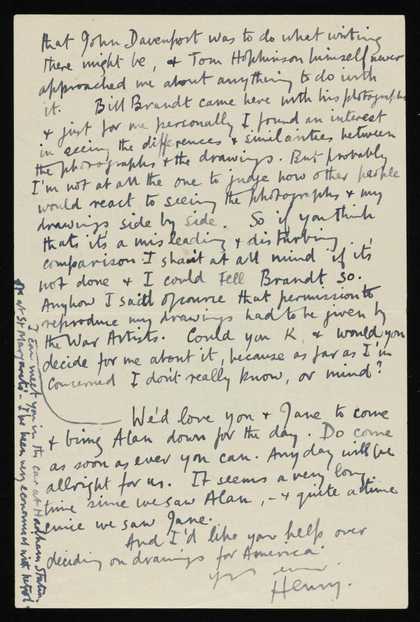 that John Davenport was to do what writing
there might be, & Tom Hopkinson himself never
approached me about anything to do with
it. Bill Brandt came here with his photographs
& just for me personally I found an interest
in seeing the differences & similarities between
the photographs & the drawings. But probably
I'm not at all the one to judge how other people
would react to seeing the photographs & my
drawings side by side. So if you think
that its a misleading & disturbing
comparison I shant at all mind if its
not done & I could tell Brandt so.
Anyhow I said of course that permission to
reproduce my drawings had to be given by
the War Artists. Could you K, & would you
decide for me about it, because as far as I'm
concerned I don't really know, or mind?
We'd love you & Jane to come
& bring Alan down for the day. Do come
as soon as ever you can. Any day will be
allright for us. It seems a very long
time since we saw Alan, – & quite a time
since we saw Jane.
And I'd like your help over
deciding on drawings for America.
Yrs ever
Henry.
I can meet you in the car at Hadham Station.
or at St Margarets – I've been very economical with petrol